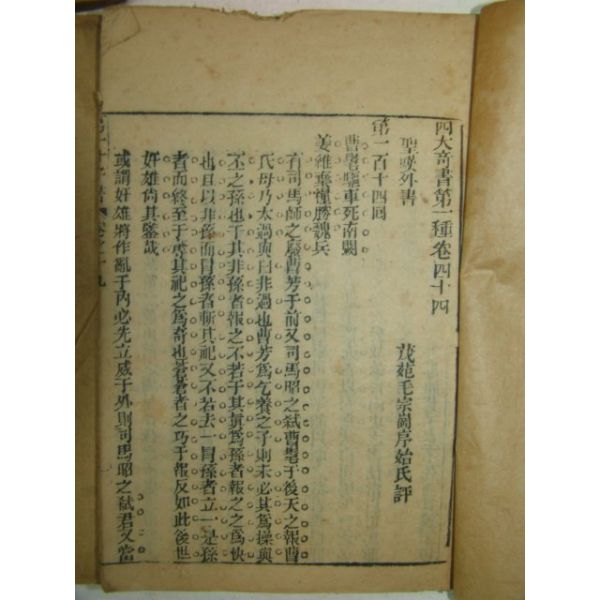 四大奇書第一種卷四十四
聖嘆外書　茂苑毛宗崗序始氏評
第一百十四回
曹髦驅車死南闕
姜維棄糧勝魏兵
有司馬師之廢曹芳于前又司馬昭之弒曹髦于後天之報曹
氏毋乃太過與曰非過也曹芳爲乞養之子則未必其爲操與
丕之孫也于其非孫者報之不若于其眞爲孫者報之之爲快
也且以非孫而冒孫者斬其祀又不若去一冒孫者立一是孫
者而終至于其祀之爲奇也蒼蒼者之巧于報反如此後世
奸雄尚其鑒哉
或謂奸雄將作亂于內必先立威于外則司馬昭之弒君又當